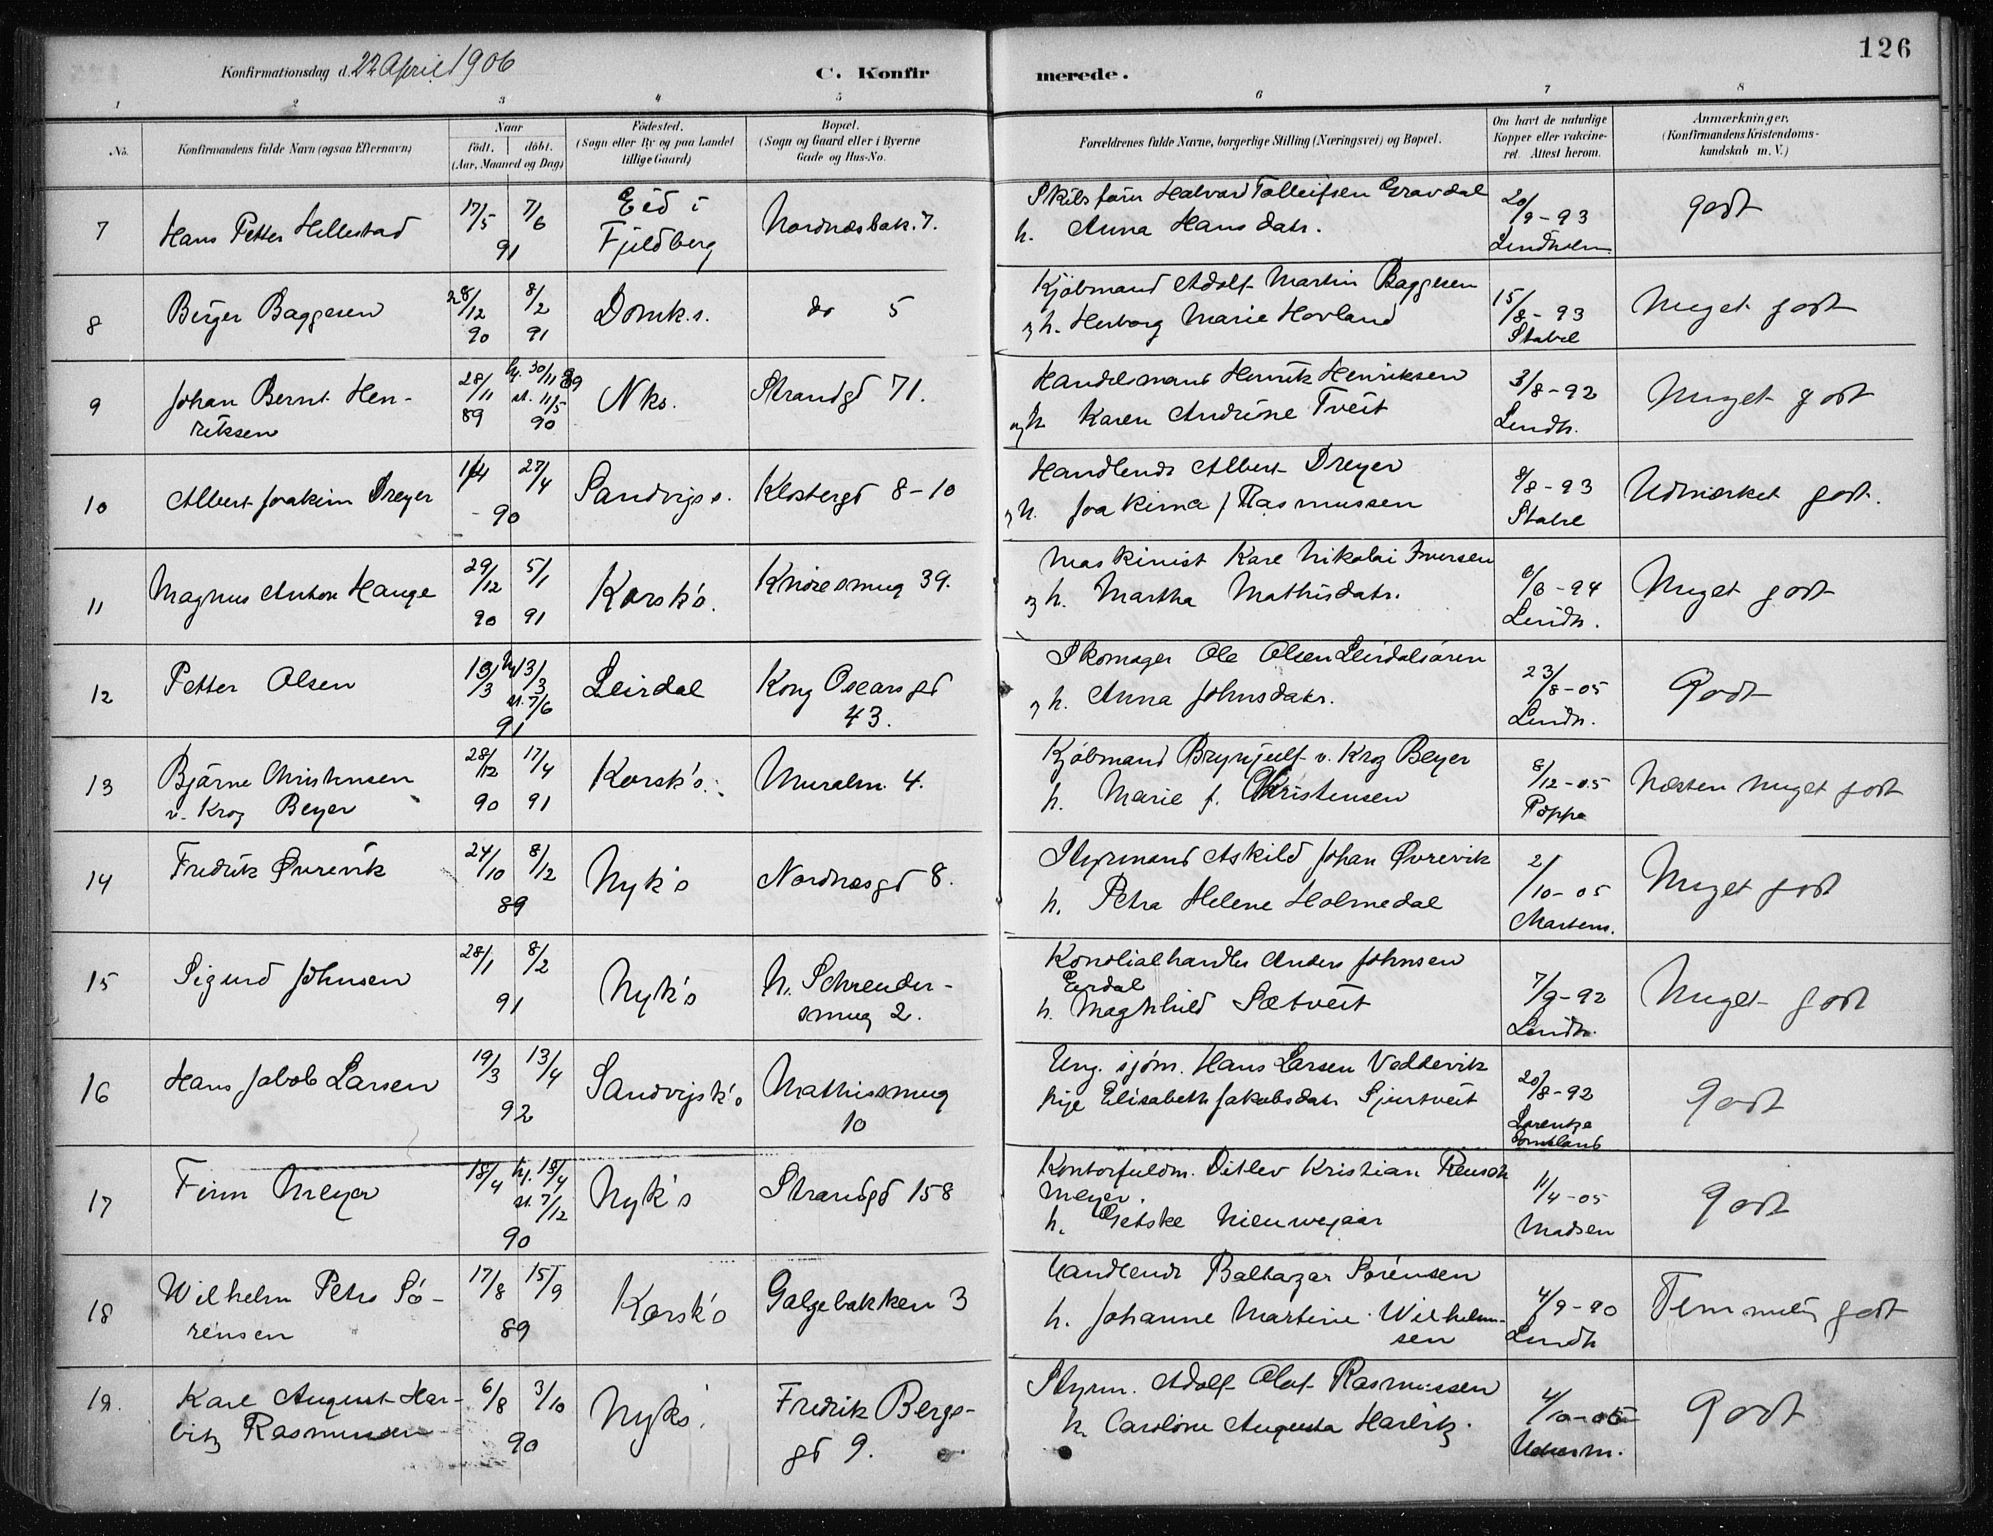 126
Konfirmationsdag d. 22 April 1906
C. Konfirmerede.
1 2 3 4 5 6 7 8
No. Konfirmandens fulde Navn (ogsaa Efternavn) Naar født. døbt. (Aar, Maaned og Dag) Fødested. (Sogn eller By og paa Landet tillige Gaard) Bopæl. (Sogn og Gaard eller i Byerne Gade og Hus-No. Forældrenes fulde Navne, borgerlige Stilling (Næringsvei) og Bopæl. Om havt de naturlige Kopper eller vakcineret. Attest herom. Anmærkninger. (Konfirmandens Kristendomskundskab m. V.)
7 Hans Petter Hillestad 17/5 7/6 91 Eid i Fjeldberg Nordnæsbak. 7. Halvard Tolleifsen Gravdal
h. Anna Hansdatr. 20/9-93 Lindholm godt
8 Birger Baggesen 28/12 90 8/2 91 Domk.s. do 5 Kjøbmand Adolf Martin Baggesen
og h. Herborg Marie Hovland 15/8-93 Stabel Meget godt
9 Johan Bernt Hen-
riksen 28/11 89 hj. 30/11 89 st. 11/5 90 Nks. Strandgd 71. Handelsmand Henrik Henriksen
og h. Karen Andrine Tveit 3/8-92 Lindh. Meget godt
10 Albert Joakim Dreyer 1/4 27/4 90 Sandvigs s. Klostergd 8-10 Handlende Albert Dreyer
og h. Joakima f. Rasmussen 8/8-93 Stabel Udmærket godt.
11 Magnus Anton Hauge 29/12 90 5/1 91 Korsk's. Knøsesmug 39. Maskinist Karl Nikolai Iversen
og h. Martha Mathisdatr. 6/6-94 Lindh. Meget godt
12 Petter Olsen 13/3 hj 13/3 st. 7/6 91 Leirdal Kong Oscarsgd
43. Skomager Ole Olsen Leirdalsøren
og h. Anna Johnsdatr. 23/8-05 Lindh. Godt
13 Bjärne Christensen
v. Krog Beyer 28/12 90 17/4 91 Korsk's. Muralm. 4. Kjøbmand Brynjulf v. Krog Beyer
h. Marie f. Christensen 8/12-05 Poppe Næsten meget godt
14 Fredrik Øvrevik 24/10 8/12 89 Nyk's Nordnæsgd 8. Styrmand Askild Johan Øvrevik
h. Petra Helene Holmedal 2/10-05 Martens. Meget godt
15 Sigurd Johnsen 28/1 8/2 91 Nyk's N. Schreuder-
smug 2. Anders Johnsen
Eirdal
h. Maghild Sætveit 7/9-92 Lindh. Meget godt
16 Hans Jakob Larsen 19/3 13/4 92 Sandvigsk's Mathiessmug
10 Ung. sjøm. Hans Larsen Veddevik
pige Elisabeth Jakobsdatr 20/8-92 Lorentze Godt
17 Finn Meyer 18/4 hj. 18/4 st. 7/12 90 Nyk's Strandgd 158 Kontorfuldm. Ditlev Kristian Rensch
Meyer.
h. Getske Nieuwejaar 11/4-05 Madsen Godt
18 Wilhelm Petr. Sö-
rensen 17/8 15/9 89 Korsk's Galgebakken 3 Handlende Baltazar Sörensen
h. Johanne Martine Wilhelm-
sen 4/9-90 Lindh Temmelig godt
19. Karl August Har-
bitz Rasmussen 6/8 3/10 90 Nyk's. Fredrik Bergs-
gd 9. Styrm. Adolf Olaf Rasmussen
h. Caroline Augusta Harbitz. 4/10-05 Godt